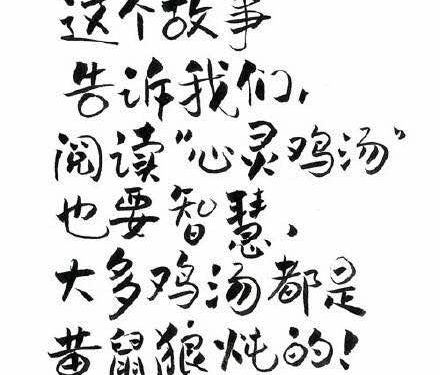 这个故事
告诉我们，
阅读“心灵鸡汤”
也要智慧，
大多鸡汤都是
黄鼠狼炖的！